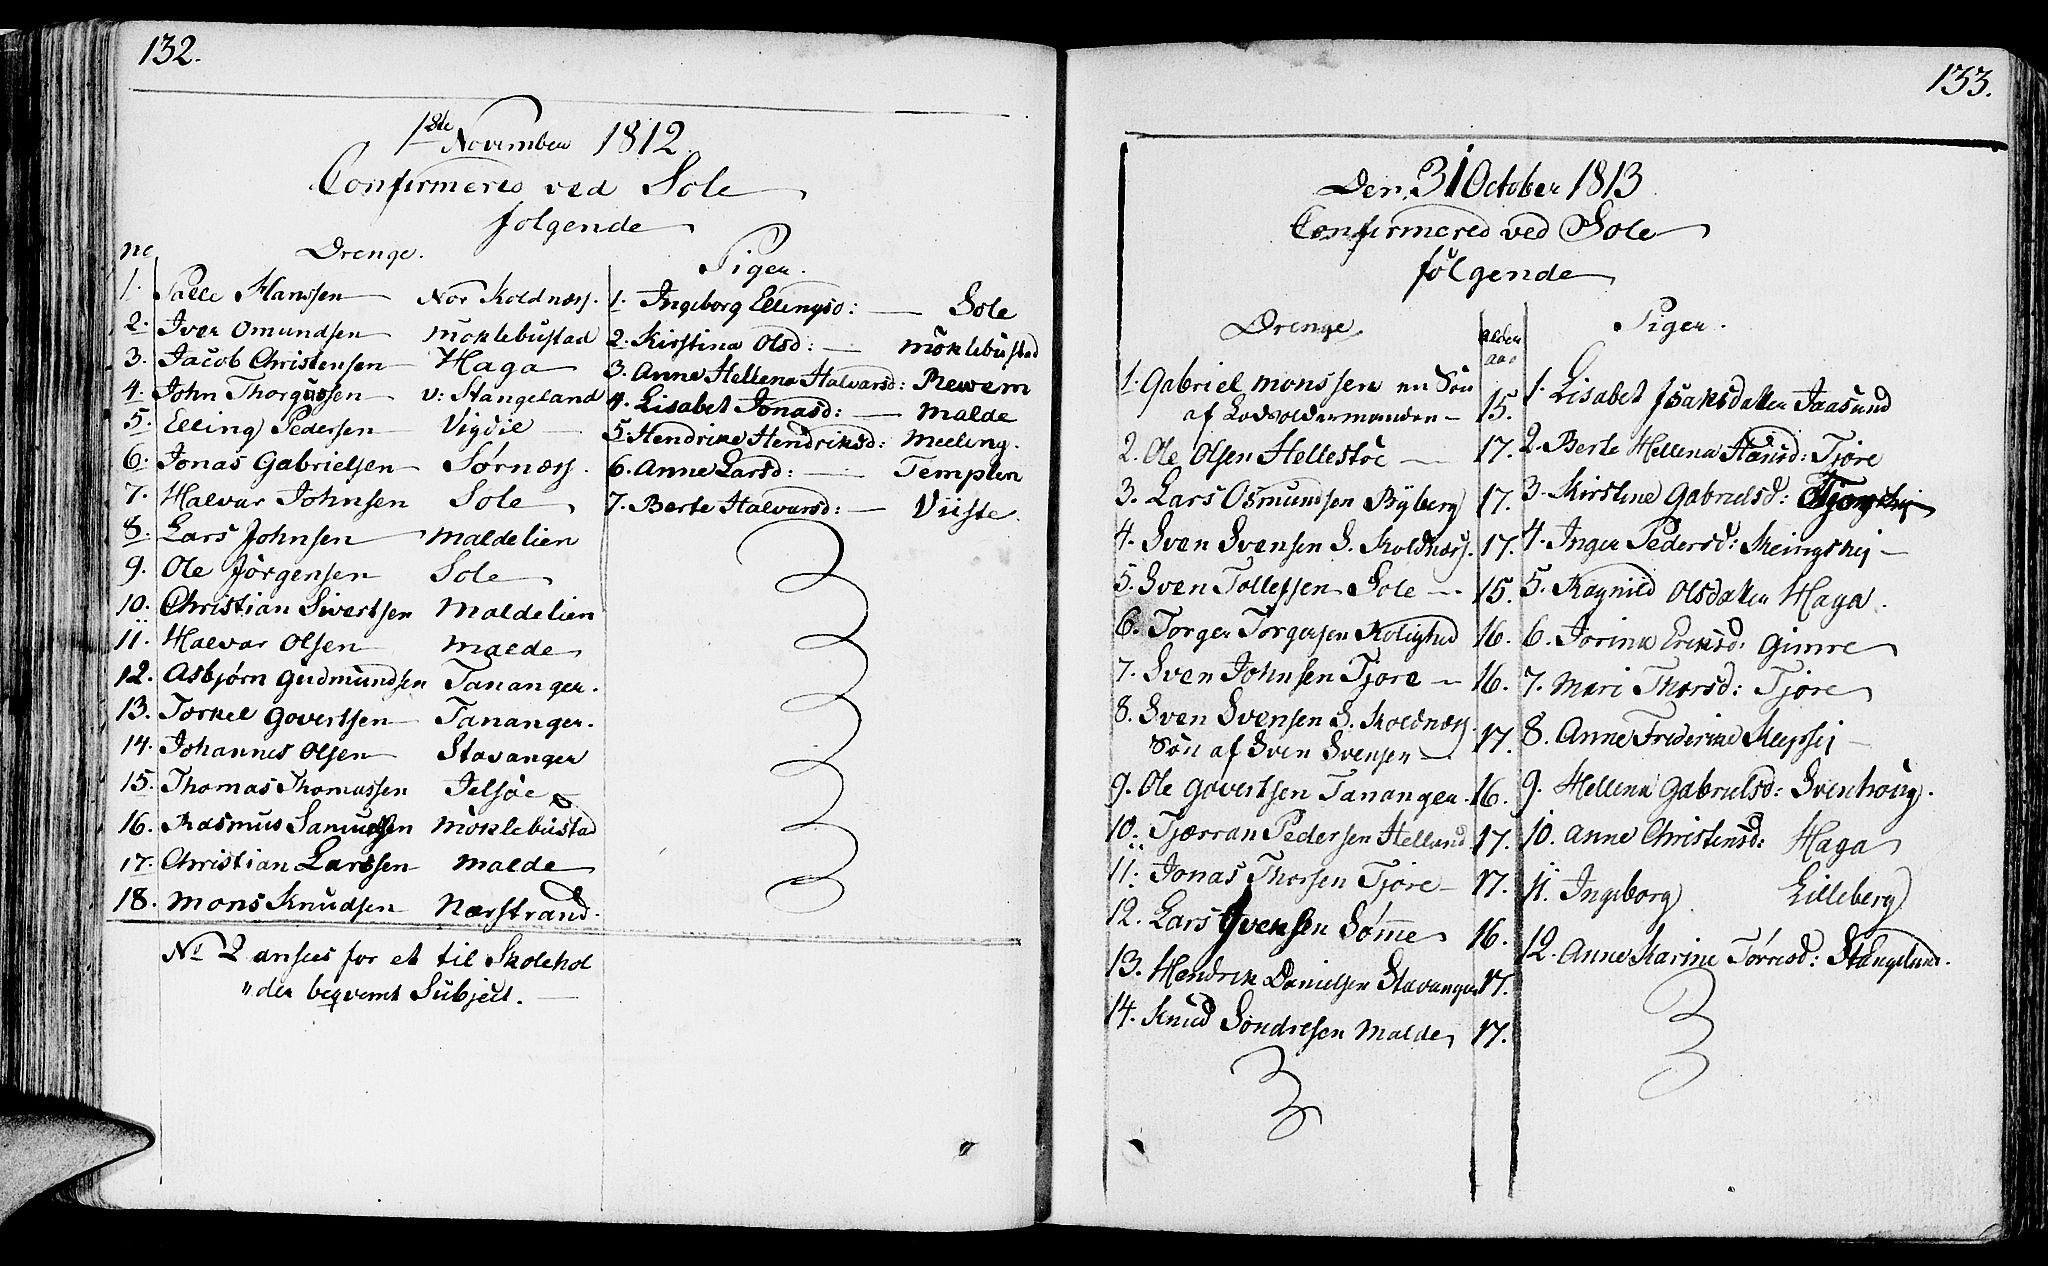 132.
1ste November 1812.
Confirmeres ved Sole
følgende
no
Drenge.
1. Palle Hanssen Nor Koldnæss.
2. Iver Omundsen Moklebustad
3. Jacob Christensen Haga
4. John Thorgussen v: Stangeland
5. Elling Pedersen Vigdil
6. Jonas Gabrielsen Sørnæss.
7. Halvar Johnsen Sole
8. Lars Johnsen Maldelien
9. Ole Jörgensen Sole
10. Christian Sivertsen Maldelien
11. Halvar Olsen Malde
12. Asbjørn Gudmundsen Tananger.
13. Torkel Govertsen Tananger.
14. Johannes Olsen Stavanger
15. Thomas Thomassen Jelsöe
16. Rasmus Samuelsen Moklebustad
17. Christian Larssen Malde
18. Mons Knudsen Nærstrand.
No 2 ansees for et til Skolehol
"der beqvemt Subject.
Piger.
1. Ingeborg Ellingsd: Sole
2. Kirstina Olsd: Moklebustad
3. Anne Hellena Halvarsd: Rewem
4. Lisabet Jonasd: Malde
5. Hendrike Hendriksd: Meeling.
6. Anne Larsd: Templen
7. Berte Halvarsd: Viiste.
133.
Den 31 October 1813.
Confirmered ved Sole
følgende
Drenge
alder
aar
1. Gabriel Monssen en Søn
af Lodsoldermanden 15.
2. Ole Olsen Hellestöe 17.
3. Lars Osmundsen Byberg 17.
4. Sven Svensen S. Koldnæss. 17.
5. Sven Tollefsen Sole 15.
6. Torger Torgersen Rolighed 16.
7. Sven Johnsen Tjore 16.
8. Sven Svensen S. Koldnæss.
Søn af Sven Svensen 17.
9. Ole Govertsen Tananger. 16.
10. Tjærran Pedersen Hellund 17.
11. Jonas Thorsen Tjøre 17.
12. Lars Svensen Sømme 16.
13. Hendrik Danielsen Stavanger 17.
14. Knud Sondresen Malde 17.
Piger.
1. Lisabet Isaksdatter Jaasund
2. Berte Hellena Hansd: Tjøre
3. Kirstine Gabrielsd:
4. Inger Pedersd:
5. Ragnild Olsdatter Haga.
6. Jorina Eriksd: Gimre
7. Mari Thorsd: Tjøre
8. Anne Frederike
9. Hellena Gabrielsd: Svenhoug.
10. Anne Christensd: Haga
11. Ingeborg Lilleberg
12. Anne Karine Tørresd: Stangeland.